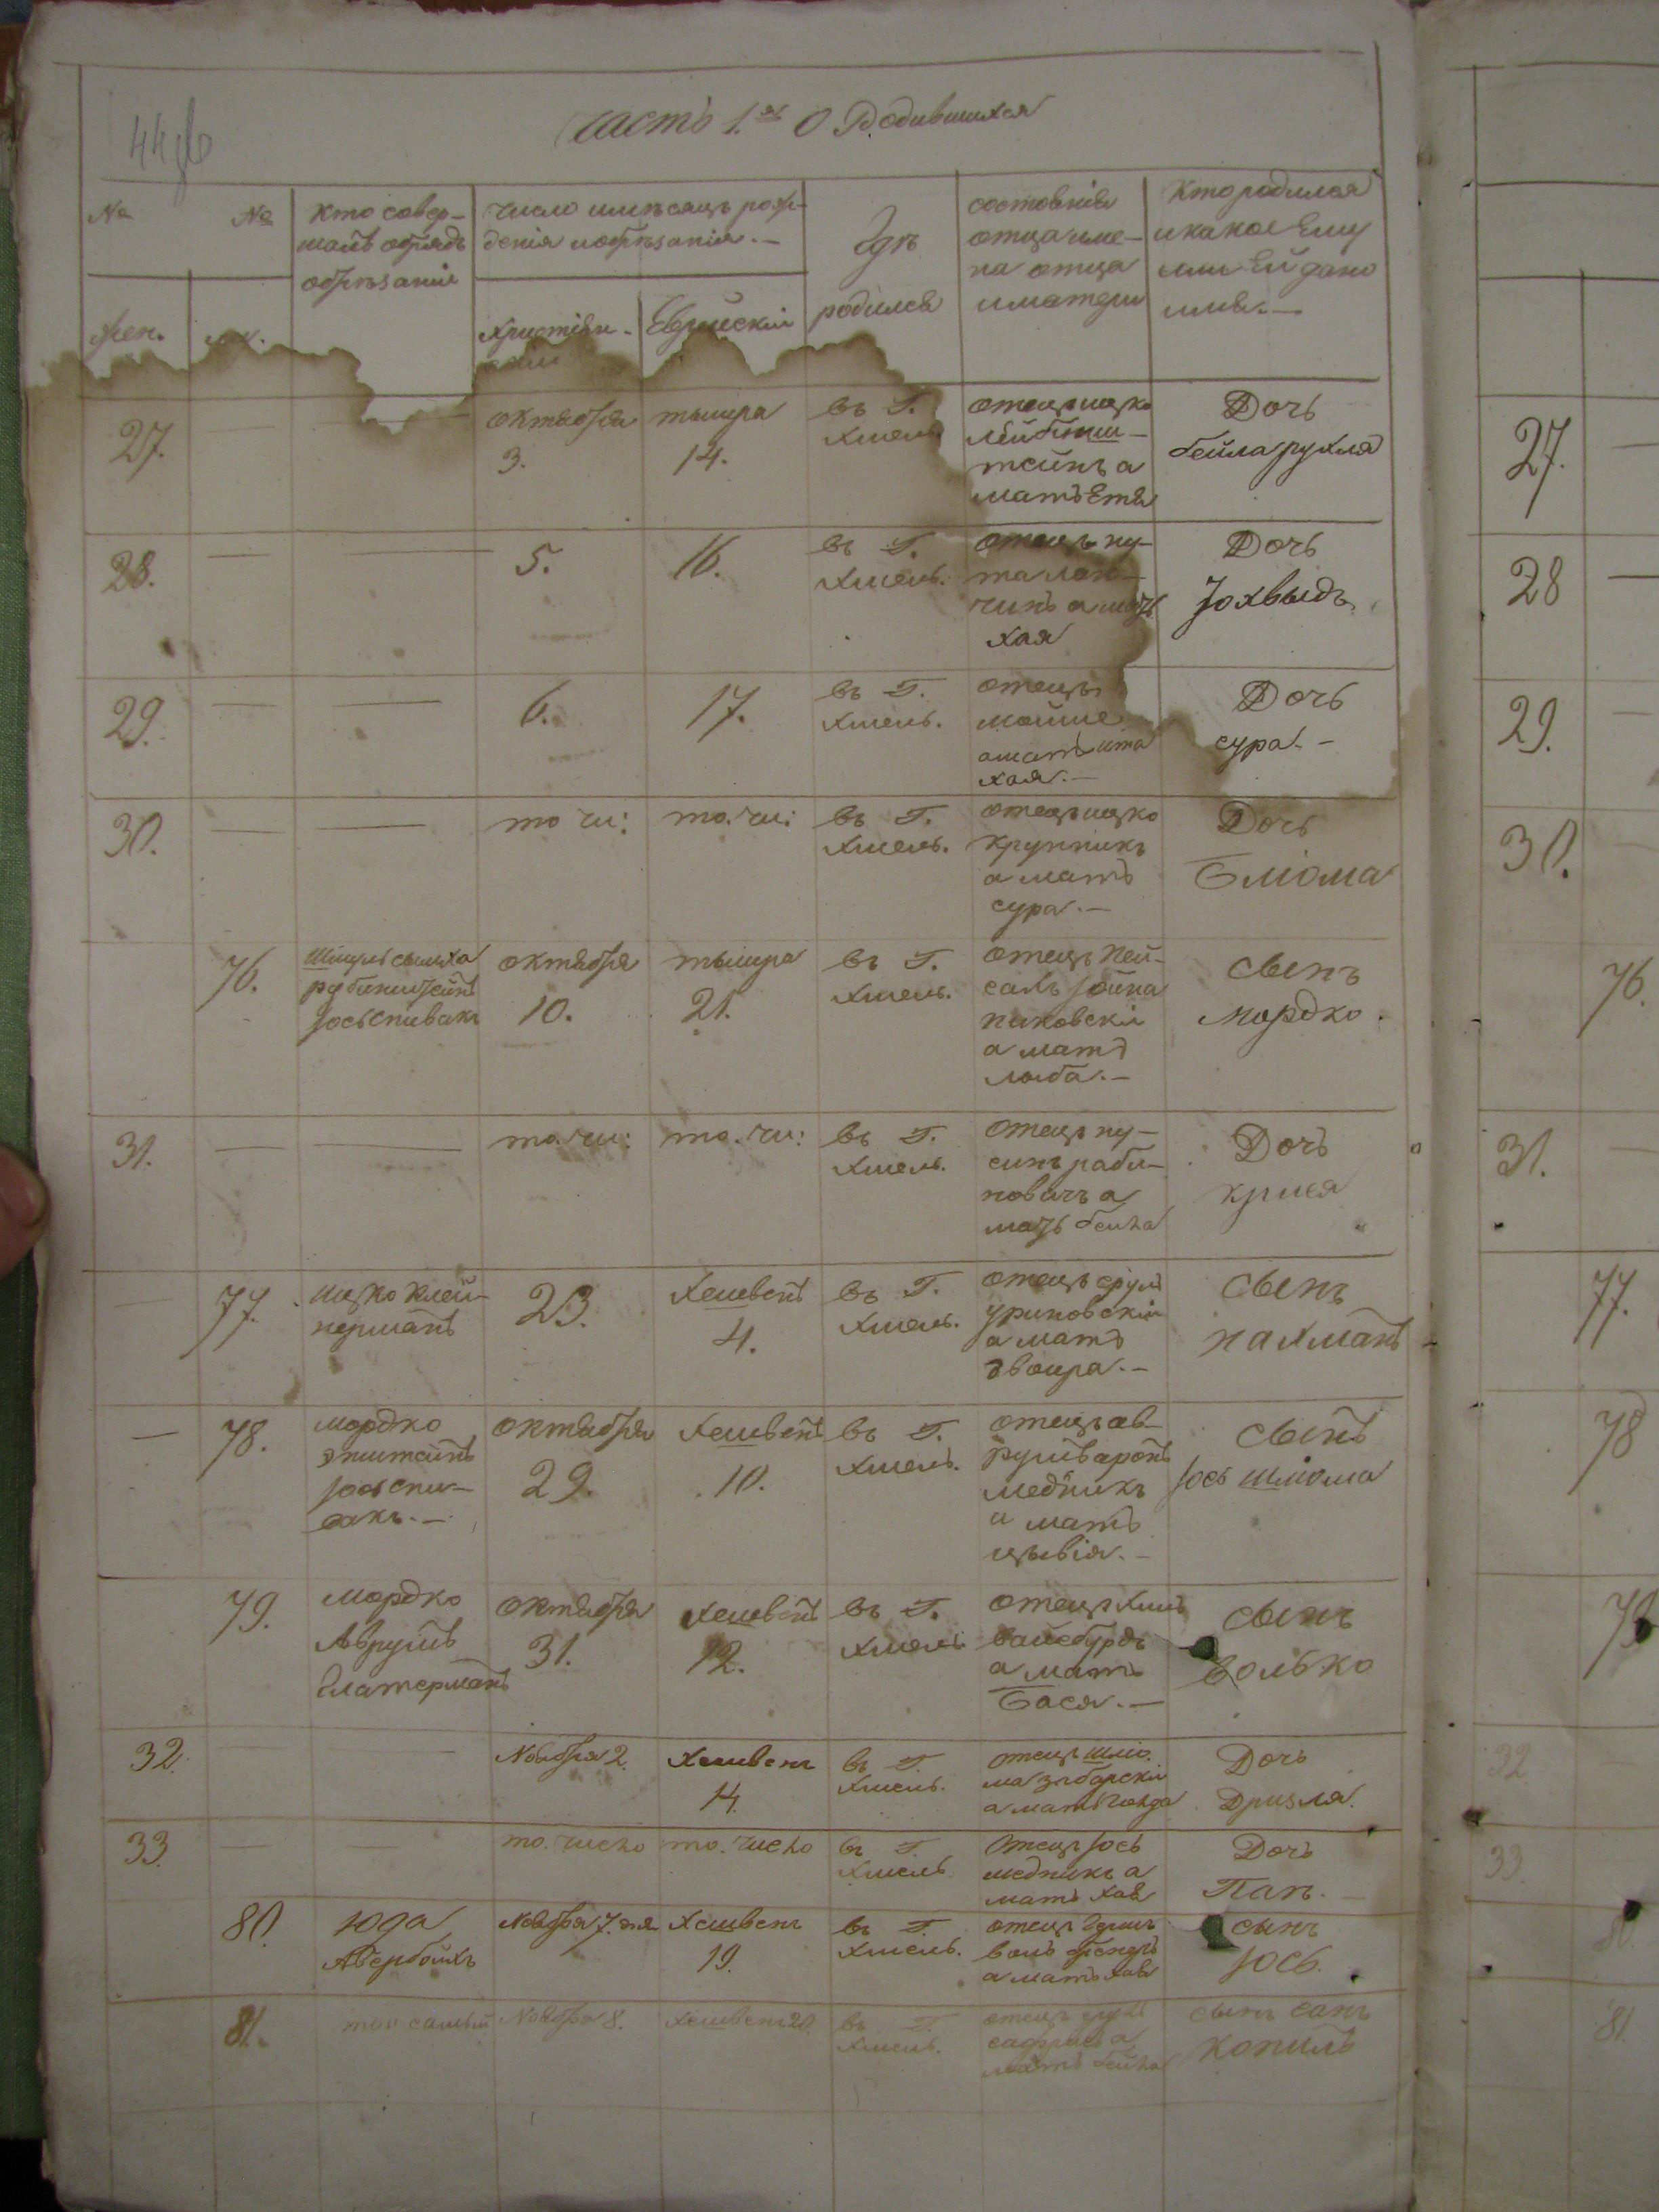 Часть 1.я О Родившихся
№ №
Кто совер-
шалъ обрядъ
обрѣзанія
число имѣсяцъ рож-
денія иобрѣзанія. —
Гдѣ
родился
состоянія
отца име-
на отца
иматери
Кто родился
икакое Ему
или Ей дано
имя. —
жен.
Христіян-
Еврейскій
27.
октября
3.
тышра
14.
въ Г.
Хмель
отецъ ицко
тейнъ а
мать Етя
Дочь
бейла рухля
28.
5.
16.
въ Г.
Хмель.
отецъ ну-
хая
Дочь
Іохвыдъ
29.
6.
17.
въ Г.
Хмель.
отецъ
мойше
а мать ита
хая. —
Дочь
сура. —
30.
то чи:
то. чи:
въ Г.
Хмель.
отецъ ицко
крупникъ
а мать
сура. —
Дочь
Блюма
76.
Шмуль симха
рубинштейнъ
Іось Спивакъ
октября
10.
тышра
21.
въ Г.
Хмель.
отецъ Пей-
сахъ Іойна
пиковскій
а мать
лыба. —
сынъ
мордко.
31.
то. чи:
то. чи:
въ Г.
Хмель.
отецъ ну-
синъ раби-
новичъ а
мать бейла
Дочь
крися
77.
ицко клей-
нерманъ
23.
Хешвенъ
4.
въ Г.
Хмель.
отецъ сруль
уриновскій
а мать
двойра. —
сынъ
нахманъ
78.
мордко
эпштейнъ
Іось спи-
вакъ. —
октября
29.
Хешвенъ
10.
въ Г.
Хмель.
отецъ ав-
румъ аронъ
медникъ
а мать
цывія. —
сынъ
Іось шлюма
79.
мордко
Аврумъ
Глатерманъ
октября
31.
Хешвенъ
12.
въ Г.
Хмель
отецъ Хаимъ
вайсбурдъ
а мать
Бася. —
сынъ
волько
32.
Ноября 2.
Хешвенъ
14.
въ Г.
Хмель.
отецъ шлю-
ма збарскій
а мать голда
Дочь
Дризля.
33.
то. число
то. число
въ Г.
Хмель
Отецъ Іось
медникъ а
мать хая
Дочь
Папъ. —
80.
юда
Авербойхъ
Ноября 7. дня
Хешвенъ
19.
въ Г.
Хмель.
отецъ
а мать хая
сынъ
Іось.
81.
той самый
Ноября 8.
Хешвенъ 20.
въ Г.
Хмель.
отецъ
мать бейла
сынъ
копиль
27.
28
29.
30.
76.
31.
77.
78
79
32
33.
80
81